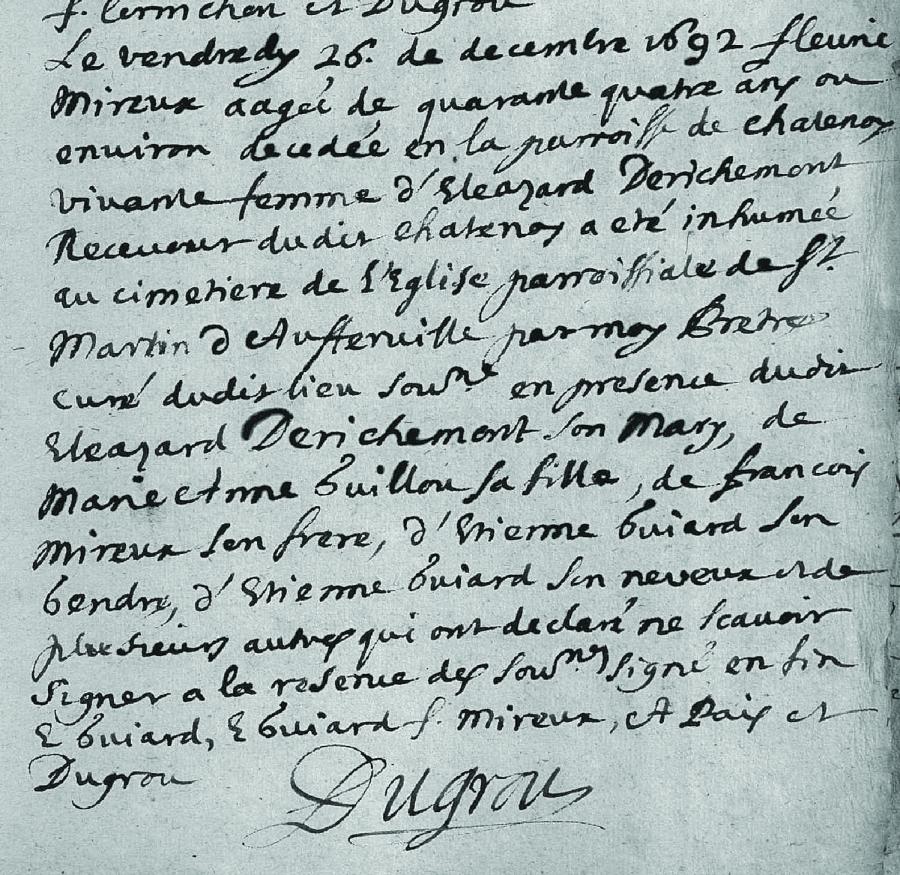 f. Lermchon et Dugrou
Le vendredy 26. de decembre 1692 fleurie
Mireux aagée de quarante quatre ans ou
environ decedée en la parroisse de chatenoy
vivante femme d'Eleazard Derichemont
Receveur dudit chatenoy a eté inhumée
au cimetiere de l'Eglise parroissiale de St.
Martin d'Aufferville par moy Bretre
curé dudit lieu sousne en presence dudit
Eleazard Derichemont son Mary, de
Marie Anne Guillou sa fille, de francois
Mireux son frere, d'Etienne Guiard son
Gendre, d'Etienne Guiard son neveux et de
plusieurs autres qui ont declaré ne scavoir
signer a la reserve des sousnes signé en fin
E Guiard, E Guiard f. Mireux, A Paix et
Dugrou
Dugrou